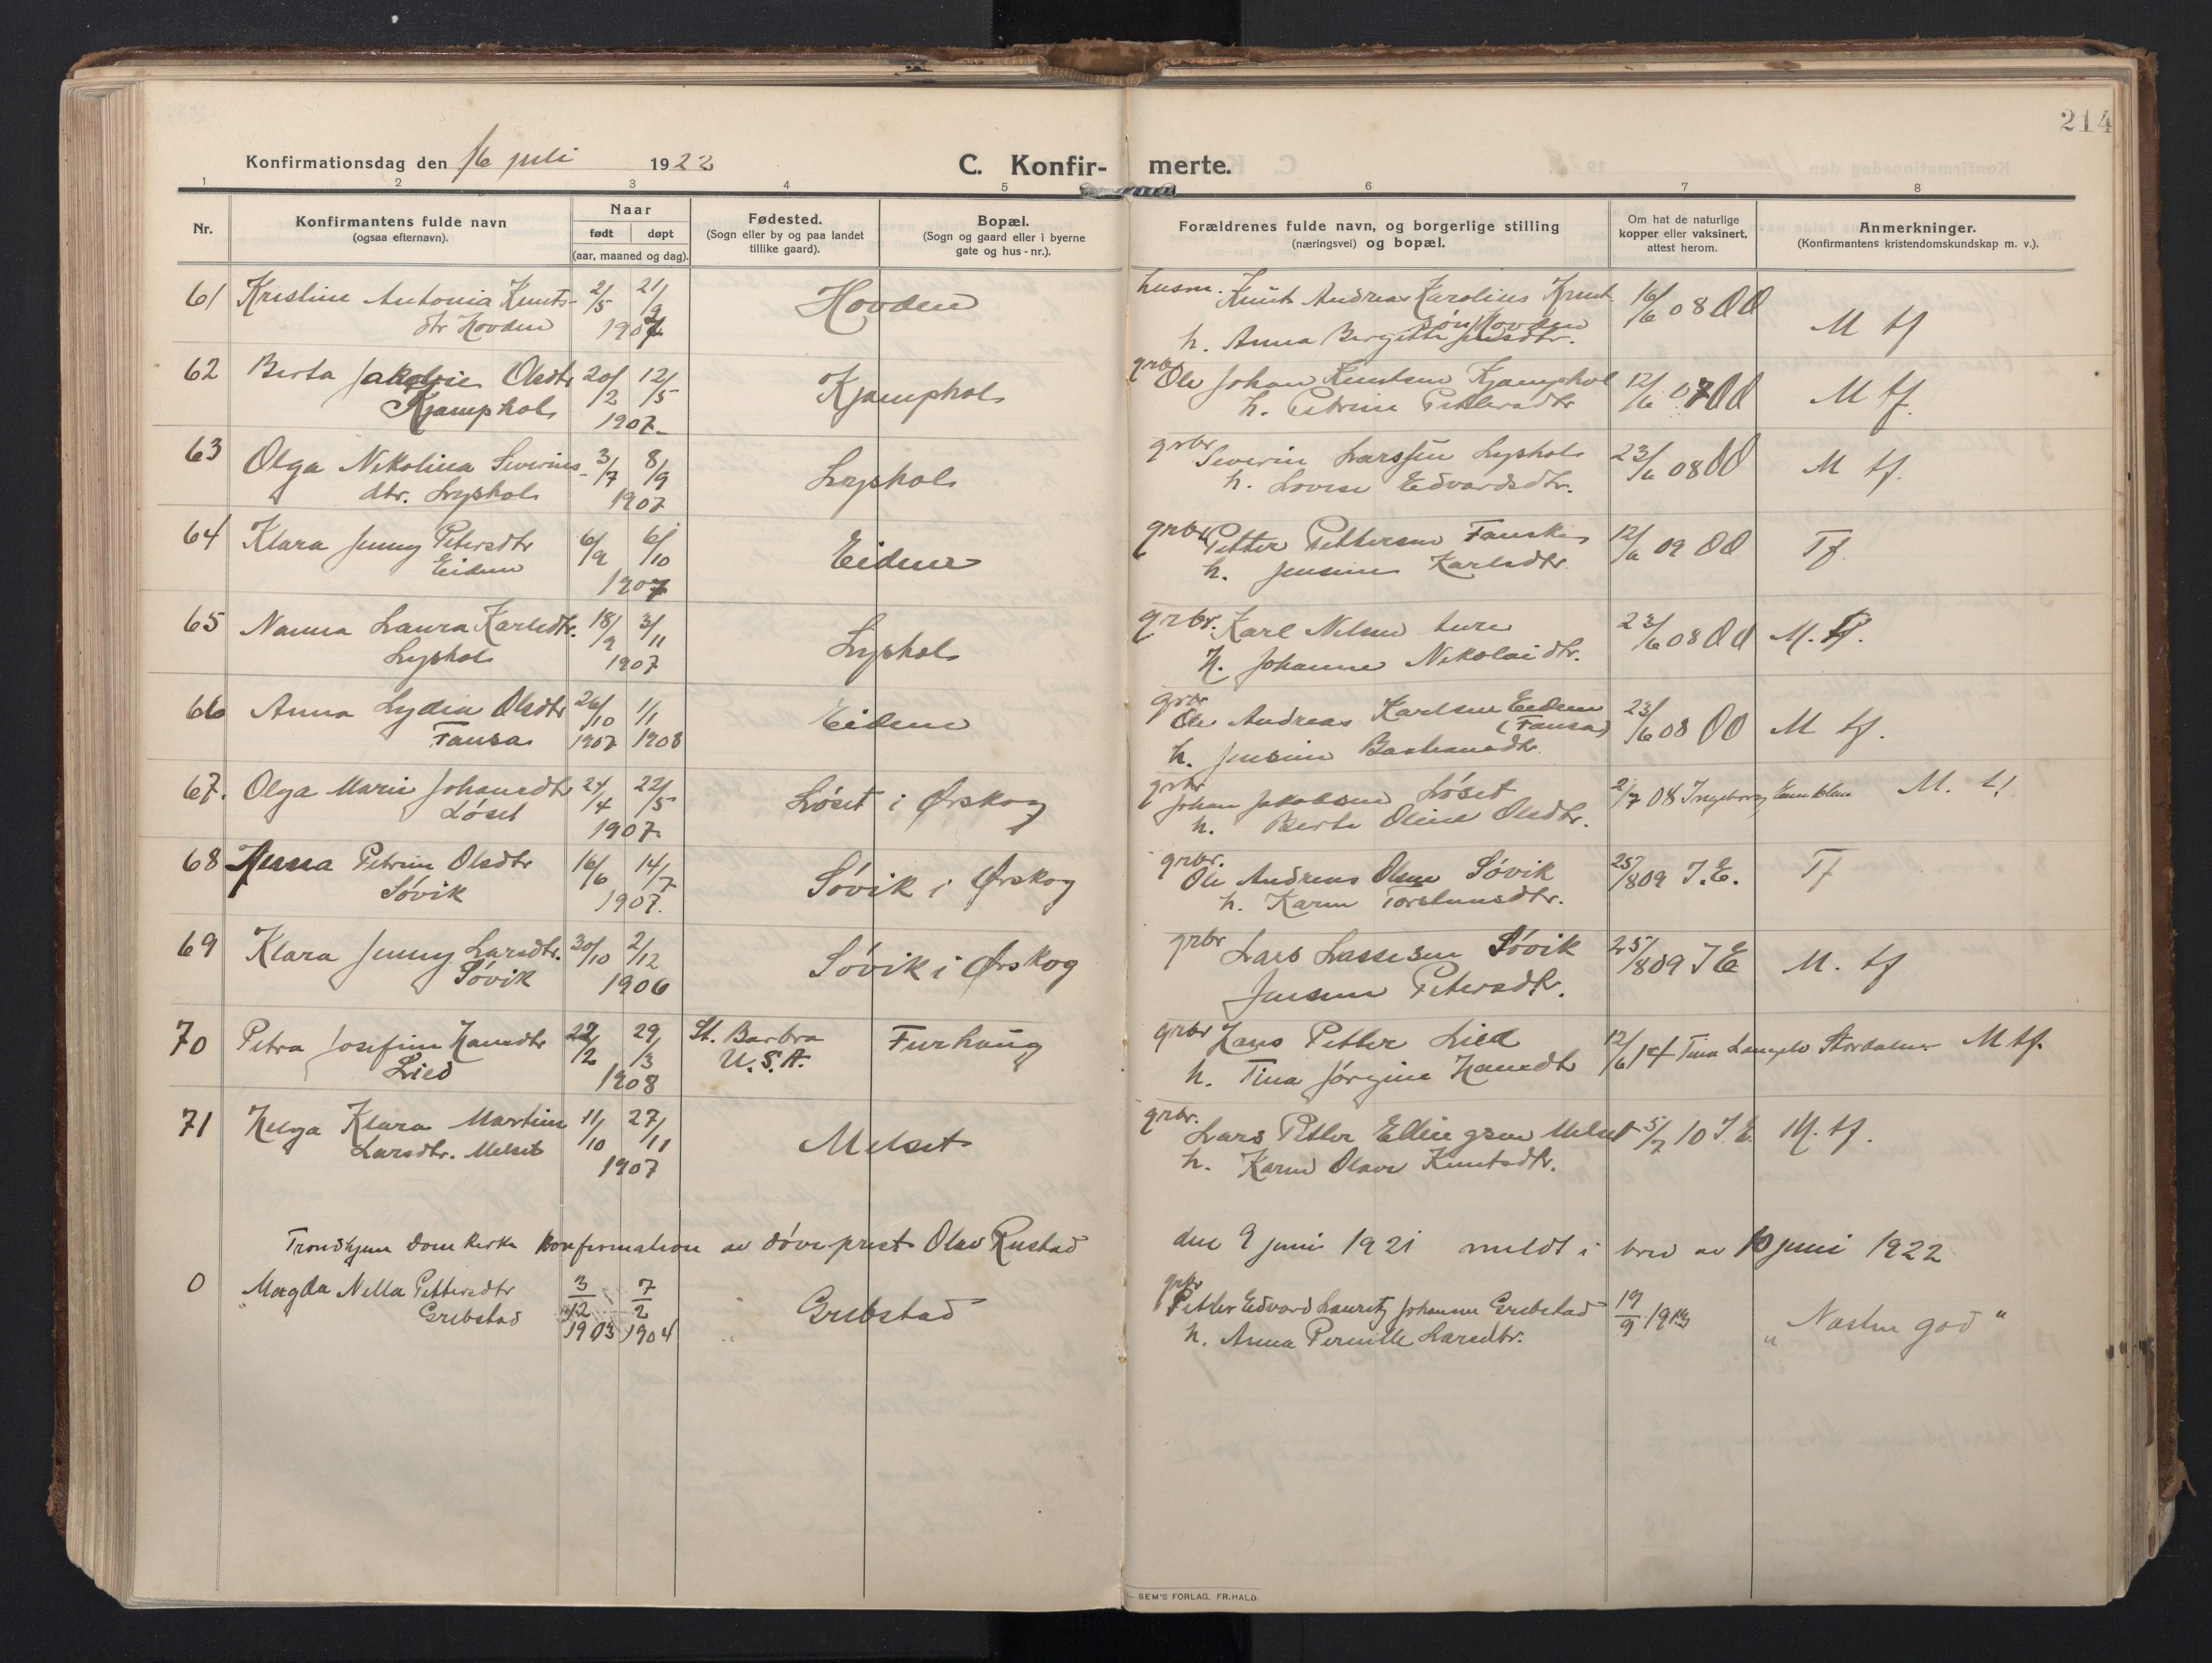 214
Konfirmationsdag den 16 juli 1922
C. Konfir- merte.
1 2 3 4 5 6 7 8
Nr.
Konfirmantens fulde navn
(ogsaa efternavn).
Naar
født døpt
(aar, maaned og dag).
Fødested.
(Sogn eller by og paa landet
tillike gaard).
Bopæl.
(Sogn og gaard eller i byerne
gate og hus-nr.).
Forældrenes fulde navn, og borgerlige stilling
(næringsvei) og bopæl.
Om hat de naturlige
kopper eller vaksinert,
attest herom.
Anmerkninger.
(Konfirmantens kristendomskundskap m. v.).
61 Kristine Antonia Knuts- 2/5 21/9 Hovden husm. Knut Andreas Karolius Knut 16/6 08 OO M tf
dtr Hovden 1907 søn Hovden
h. Anna Bergitte
62 Berta Olsdtr 20/2 12/5 Kjamphol grbr Ole Johan Knutsen Kjamphol 12/6 07 OO M tf.
Kjamphol 1907 h. Petrine Pettersdtr
63 Olga Nikolina Severins- 3/7 8/9 Lyshol grbr Severin Larssen Lyshol 23/6 08 OO M tf.
dtr. Lyshol 1907 h. Lovise Edvardsdtr.
64 Klara Jenny Petersdtr 6/9 6/10 Eidem grbr Petter Pettersen Fauske 12/6 09 OO Tf.
Eidem 1907 h. Jensine Karlsdtr
65 Nanna Laura Karlsdtr. 18/9 3/11 Lyshol grbr. Karl Nilsen 23/6 08 OO M. tf.
Lyshol 1907 h. Johanne Nikolaidtr.
66 Anna Lydia Olsdtr 26/10 1/1 Eidem grbr Ole Andreas Karlsen Eidem 23/6 08 OO M tf.
Fausa 1907 1908 (Fausa)
h. Jensine Bastiansdtr.
67. Olga Marie Johansdtr 24/4 22/5 Løset i Ørskog grbr Johan Jakobsen Løset 2/7 08 Ingeborg Emblem M. t!
Løset 1907 h. Berte Oline Olsdtr.
68 Petrine Olsdtr 16/6 14/7 Søvik i Ørskog grbr. Ole Andreas Olsen Søvik 25/8 09 I.E. Tf
Søvik 1907. h. Karen Torstensdtr.
69 Klara Jenny Larsdtr. 30/10 2/12 Søvik i Ørskog grbr Lars Lassesen Søvik 25/8 09 I E M. tf
Søvik 1906 Jensine Petersdtr.
70 Petra Josefine Hansdtr 22/2 29/3 St. Barbra Furhaug grbr Hans Petter Lied 12/6 14 Tina Stordalen M tf.
Lied 1908 U.S.A. h. Tina Jørgine Hansdtr
71 Helga Klara Martine 11/10 27/11 Melset grbr. Lars Petter Ellingsen Melset 5/7 10 I.E. M. tf.
Larsdtr. Melset 1907 h. Karen Olave Knutsdtr.
Trondhjem Domkirke konfirmation av døveprest Olav Rustad den 9 juni 1921 meldt i brev av 10 juni 1922
0 Magda Nella Pettersdtr 3/12 7/2 Grebstad grbr Petter Edvard Lauritz Johansen Grebstad 19/9 19 „Næsten god“
Grebstad 1903 1904 h. Anna Pernille Larsdtr.
SEM'S FORLAG. FR.HALD.